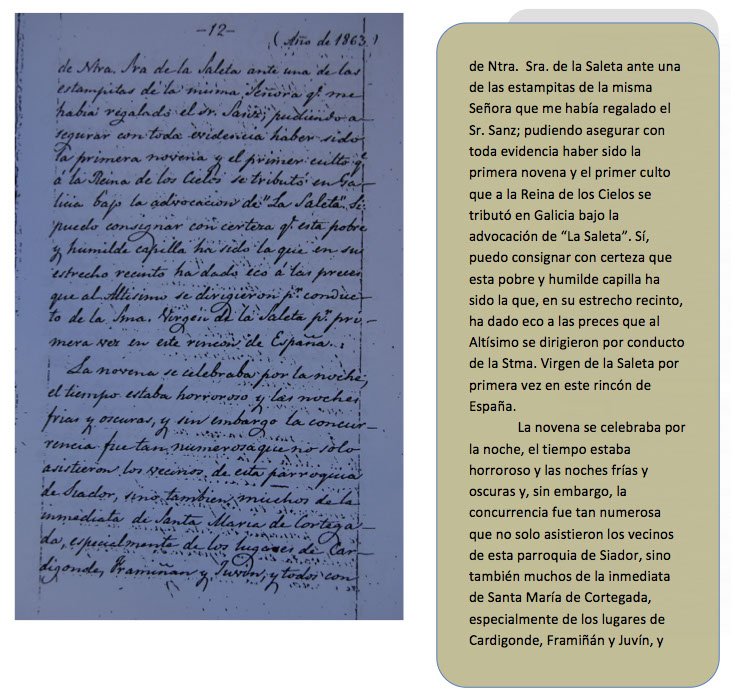 -12-
(Año de 1863.)
de Ntra. Sra de la Saleta ante una de las
estampitas de la misma Señora q.e me
habia regalado el sr. Sanz; pudiendo a-
segurar con toda evidencia haber sido
la primera novena y el primer culto q.e
á la Reina de los Cielos se tributó en Ga-
licia bajo la advocacion de "La Saleta". Si,
puedo consignar con certeza q.e esta pobre
y humilde capilla ha sido la que en su
estrecho recinto ha dado eco á las preces
que al Altisimo se dirigieron p.r conduc-
to de la Sma. Virgen de la Saleta p.r pri-
mera vez en este rincón de España.
La novena se celebraba por la noche,
el tiempo estaba horroroso y las noches
frias y oscuras, y sin embargo la concur-
rencia fue tan numerosa que no solo
asistieron los vecinos de esta parroquia
de Siador, sino tambien muchos de la
inmediata de Santa Maria de Cortega-
da, especialmente de los lugares de Car-
digonde, Framiñan y Juvin, y todos con
de Ntra. Sra. de la Saleta ante una
de las estampitas de la misma
Señora que me había regalado el
Sr. Sanz; pudiendo asegurar con
toda evidencia haber sido la
primera novena y el primer culto
que a la Reina de los Cielos se
tributó en Galicia bajo la
advocación de “La Saleta”. Sí,
puedo consignar con certeza que
esta pobre y humilde capilla ha
sido la que, en su estrecho recinto,
ha dado eco a las preces que al
Altísimo se dirigieron por conducto
de la Stma. Virgen de la Saleta por
primera vez en este rincón de
España.
La novena se celebraba por
la noche, el tiempo estaba
horroroso y las noches frías y
oscuras y, sin embargo, la
concurrencia fue tan numerosa
que no solo asistieron los vecinos
de esta parroquia de Siador, sino
también muchos de la inmediata
de Santa María de Cortegada,
especialmente de los lugares de
Cardigonde, Framiñán y Juvín, y